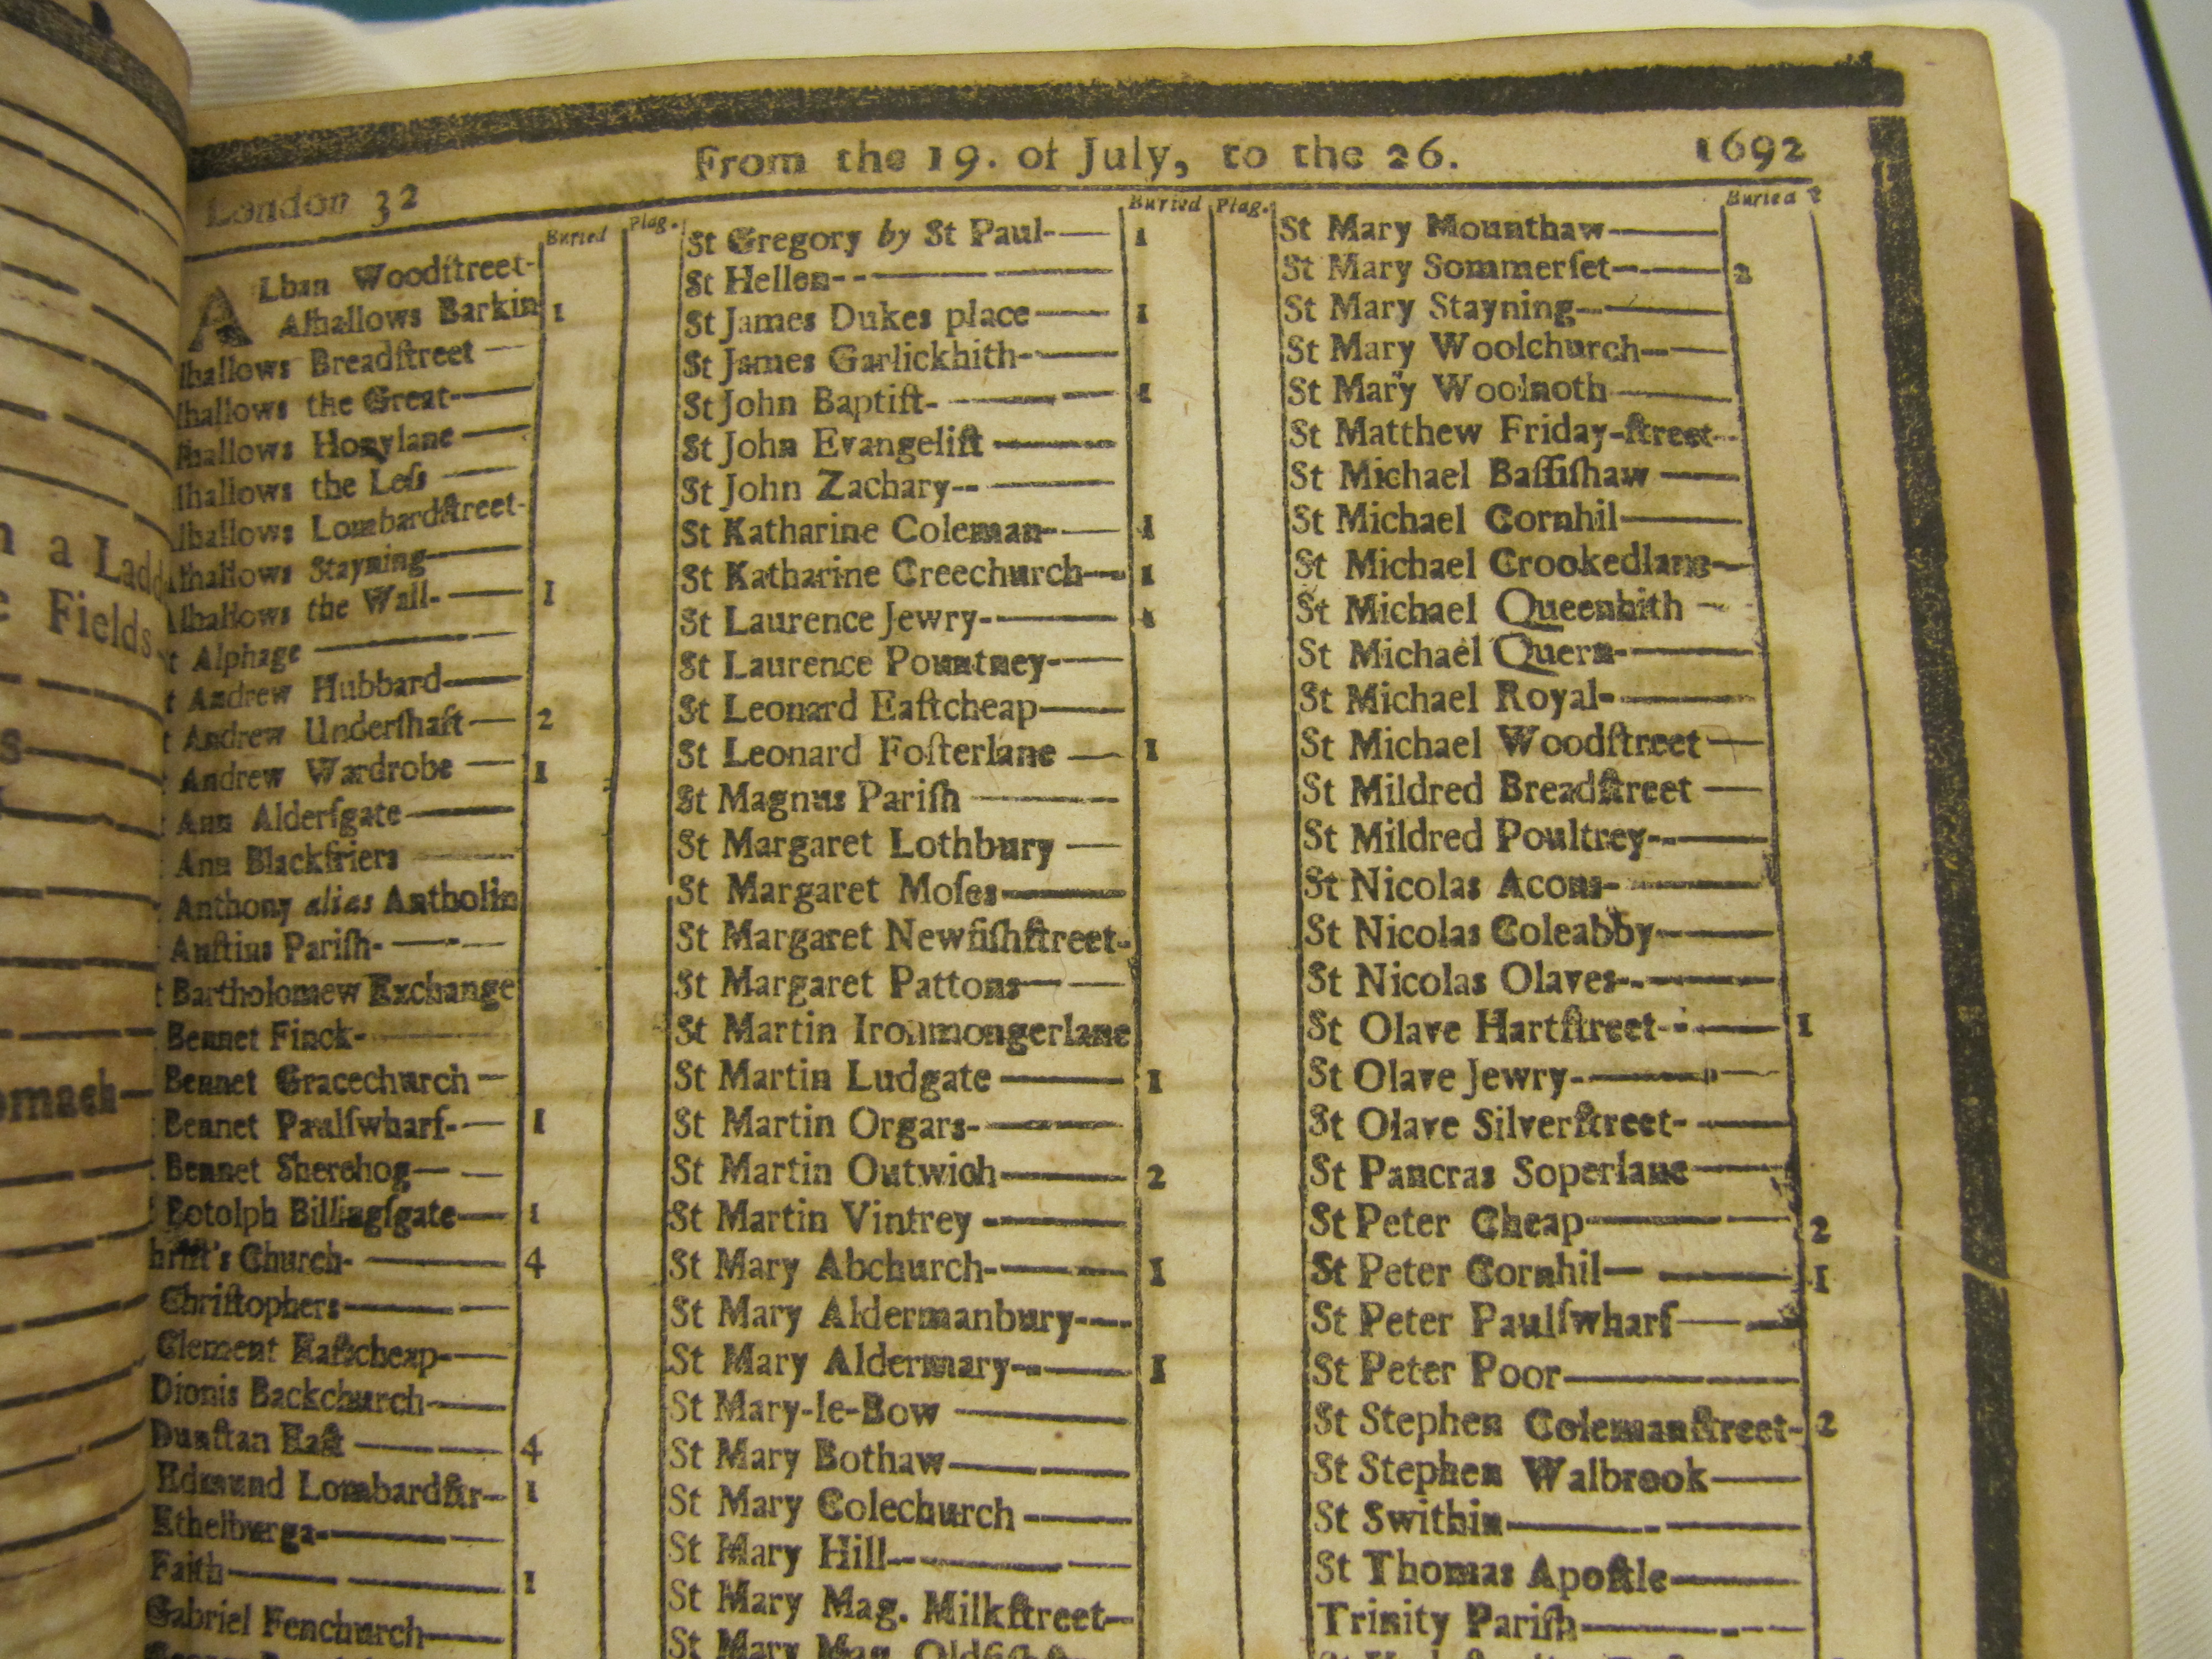 From the 19. of July, to the 26. 1692
London 32
Buried Plag.
ALban Woodſtreet-
Alhallows Barkin 1
lhallows Breadſtreet —
lhallows the Great-
lhallows Honylane —
lhallows the Leſs —
lhallows Lombardſtreet-
Alhallows Stayning—
Alhallows the Wall- — 1
t Alphage —
t Andrew Hubbard—
t Andrew Underſhaft— 2
Andrew Wardrobe — 1
Ann Alderſgate—
Ann Blackfriers —
Anthony alias Antholin
Auſtins Pariſh- —
t Bartholomew Exchange
Bennet Finck-
Bennet Gracechurch —
Bennet Paulſwharf- — 1
Bennet Sherehog— —
Botolph Billingſgate— 1
hriſt's Church- — 4
Chriſtophers— —
Clement Eaſtcheap-—
Dionis Backchurch—
Dunſtan Eaſt — 4
Edmund Lombardſtr— 1
Ethelburga- —
Faith— — 1
Gabriel Fenchurch—
Buried Plag.
St Gregory by St Paul-— 1
St Hellen- - — —
St James Dukes place — 1
St James Garlickhith-—
St John Baptiſt- — — 1
St John Evangeliſt —
St John Zachary-- —
St Katharine Coleman-— 1
St Katharine Creechurch— 1
St Laurence Jewry-— 1
St Laurence Pountney-—
St Leonard Eaſtcheap—
St Leonard Foſterlane — 1
St Magnus Pariſh —
St Margaret Lothbury —
St Margaret Moſes—
St Margaret Newfiſhſtreet-
St Margaret Pattons— —
St Martin Ironmongerlane
St Martin Ludgate — 1
St Martin Orgars- —
St Martin Outwich— 2
St Martin Vintrey -—
St Mary Abchurch-— 1
St Mary Aldermanbury-—
St Mary Aldermary-— 1
St Mary-le-Bow —
St Mary Bothaw—
St Mary Colechurch —
St Mary Hill— —
St Mary Mag. Milkſtreet—
St Mary Mag.
Buried
St Mary Mounthaw—
St Mary Sommerſet-— 2
St Mary Stayning-—
St Mary Woolchurch-—
St Mary Woolnoth —
St Matthew Friday-ſtreet-
St Michael Baſſiſhaw —
St Michael Cornhil—
St Michael Crookedlane-
St Michael Queenhith —
St Michael Quern-—
St Michael Royal-—
St Michael Woodſtreet —
St Mildred Breadſtreet —
St Mildred Poultrey-—
St Nicolas Acons- —
St Nicolas Coleabby—
St Nicolas Olaves-—
St Olave Hartſtreet- — 1
St Olave Jewry- —
St Olave Silverſtreet- —
St Pancras Soperlane —
St Peter Cheap— 2
St Peter Cornhil— — 1
St Peter Paulſwharf— —
St Peter Poor—
St Stephen Colemanſtreet- 2
St Stephen Walbrook —
St Swithin— —
St Thomas Apoſtle—
Trinity Pariſh—
a Lad
Fields